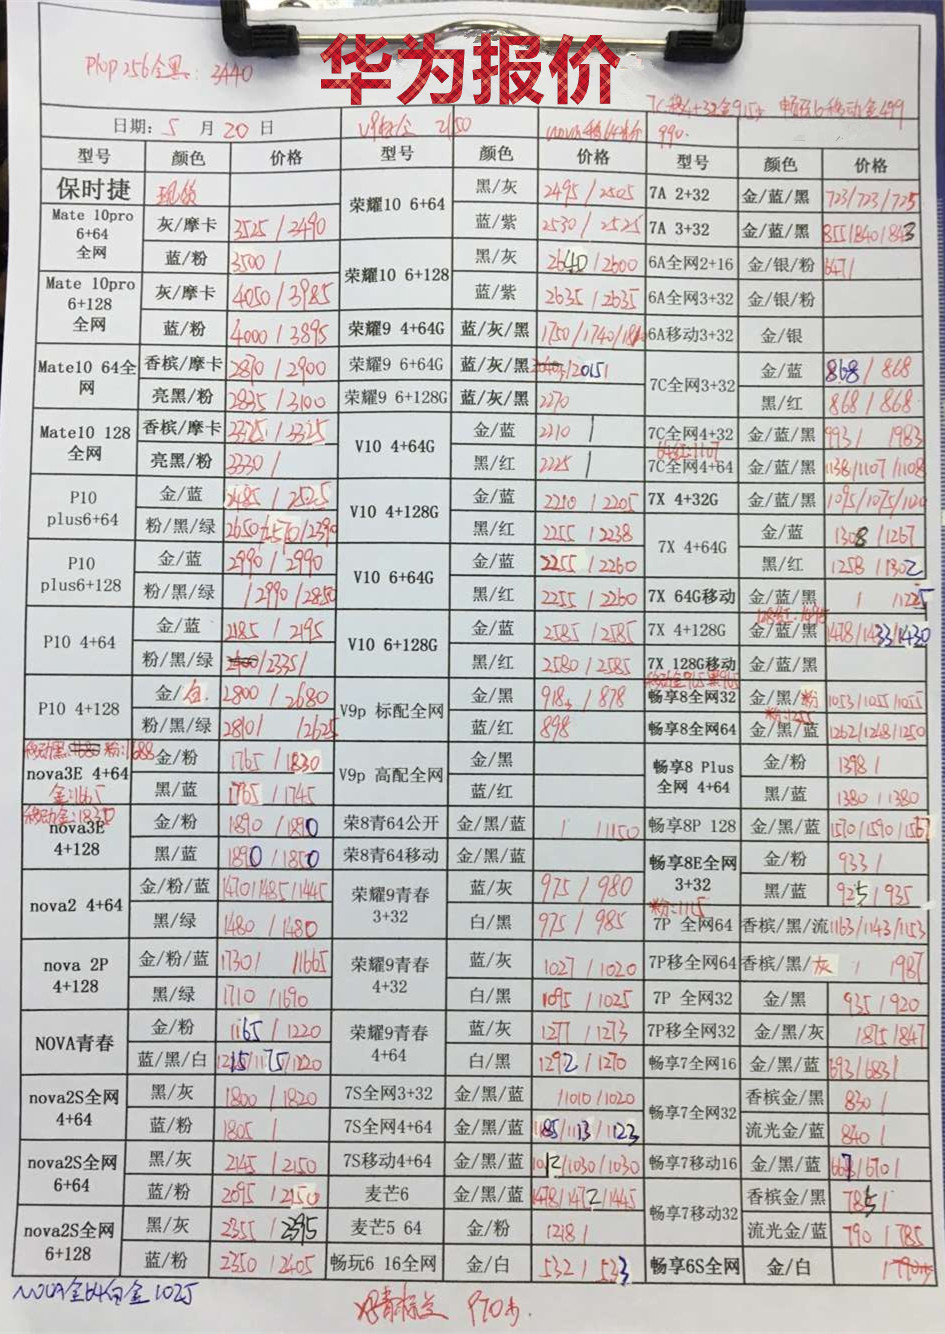 华为报价
Plup 256全黑: 3440
日期: 5 月 20 日
型号 颜色 价格 型号 颜色 价格 型号 颜色 价格
保时捷
Mate 10pro 6+64 全网 灰/摩卡 3525 / 3490
蓝/粉 3500 /
Mate 10pro 6+128 全网 灰/摩卡 4050 / 3985
蓝/粉 4000 / 3895
Mate10 64全网 香槟/摩卡 2870 / 2900
亮黑/粉 2835 / 3100
Mate10 128 全网 香槟/摩卡 3325 / 3325
亮黑/粉 3330 /
P10 plus6+64 金/蓝 2485 / 2525
粉/黑/绿
P10 plus6+128 金/蓝 2990 / 2990
粉/黑/绿 / 2990 / 2850
P10 4+64 金/蓝 2185 / 2195
粉/黑/绿 /2335/
P10 4+128 金/白 2800 / 2680
粉/黑/绿 2810 / 2625
nova3E 4+64 金/粉 1765 / 1830
金:1665
黑/蓝 1765 / 1745
移动金:1835
nova3E 4+128 金/粉 1890 / 1890
黑/蓝 1890 / 1850
nova2 4+64 金/粉/蓝 1470/1485/1445
黑/绿 1480 / 1480
nova 2P 4+128 金/粉/蓝 1730 / 1665
黑/绿 1710 / 1690
NOVA青春 金/粉 1165 / 1220
蓝/黑/白 1215/1175/1220
nova2S全网 4+64 黑/灰 1800 / 1820
蓝/粉 1805 /
nova2S全网 6+64 黑/灰 2145 / 2150
蓝/粉 2095 / 2150
nova2S全网 6+128 黑/灰 2355 / 2395
蓝/粉 2350 / 2405
荣耀10 6+64 黑/灰 2495 / 2505
蓝/紫 2530 / 2525
荣耀10 6+128 黑/灰 2640 / 2600
蓝/紫 2635 / 2635
荣耀9 4+64G 蓝/灰/黑 1750 / 1740 / 1810
荣耀9 6+64G 蓝/灰/黑
荣耀9 6+128G 蓝/灰/黑 2270
V10 4+64G 金/蓝 2210 /
黑/红 2225 /
V10 4+128G 金/蓝 2210 / 2205
黑/红 2255 / 2238
V10 6+64G 金/蓝 2255 / 2260
黑/红 2255 / 2260
V10 6+128G 金/蓝 2585 / 2585
黑/红 2580 / 2585
V9p 标配全网 金/黑 918 / 878
蓝/红 898
V9p 高配全网 金/黑
蓝/红
荣8青64公开 金/黑/蓝 / / 1150
荣8青64移动 金/黑/蓝
荣耀9青春 3+32 蓝/灰 975 / 980
白/黑 975 / 985
荣耀9青春 4+32 蓝/灰 1027 / 1020
白/黑 1095 / 1025
荣耀9青春 4+64 蓝/灰 1277 / 1273
白/黑 1292 / 1270
7S全网3+32 金/黑/蓝 / 1010 / 1020
7S全网4+64 金/黑/蓝 1185/1113/1123
7S移动4+64 金/黑/蓝 1012/1030/1030
麦芒6 金/黑/蓝 1478/1472/1445
麦芒5 64 金/粉 1218 /
畅玩6 16全网 金/白 532 / 533
7A 2+32 金/蓝/黑 723/723/725
7A 3+32 金/蓝/黑 855/840/843
6A全网2+16 金/银/粉 647 /
6A全网3+32 金/银/粉
6A移动3+32 金/银
7C全网3+32 金/蓝 868 / 868
黑/红 868 / 868
7C全网4+32 金/蓝/黑 993 / / 983
7C全网4+64 金/蓝/黑 1138/1107/1108
7X 4+32G 金/蓝/黑
7X 4+64G 金/蓝 1308 / 1267
黑/红 1258 / 1302
7X 64G移动 金/蓝/黑 / / 1225
7X 4+128G 金/蓝/黑 1478/1433/1430
7X 128G移动 金/蓝/黑
畅享8全网32 金/黑/粉 1053/1055/1055
畅享8全网64 金/黑/蓝 1262/1248/1250
畅享8 Plus 全网 4+64 金/粉 1398 /
黑/蓝 1380 / 1380
畅享8P 128 金/黑/蓝 1570/1590/1567
畅享8E全网 3+32 金/粉 933 /
黑/蓝 925 / 935
粉:1115
7P 全网64 香槟/黑/流 1163/1143/1153
7P移全网64 香槟/黑/灰 / / 987
7P 全网32 金/黑 935 / 920
7P移全网32 金/黑/灰 / 875 / 847
畅享7全网16 金/黑/蓝 693/683/
畅享7全网32 香槟金/黑 830 /
流光金/蓝 840 /
畅享7移动16 金/黑/蓝 667/670/
畅享7移动32 香槟金/黑 785 /
流光金/蓝 790 / 785
畅享6S全网 金/白
NOVA金64白金 1025